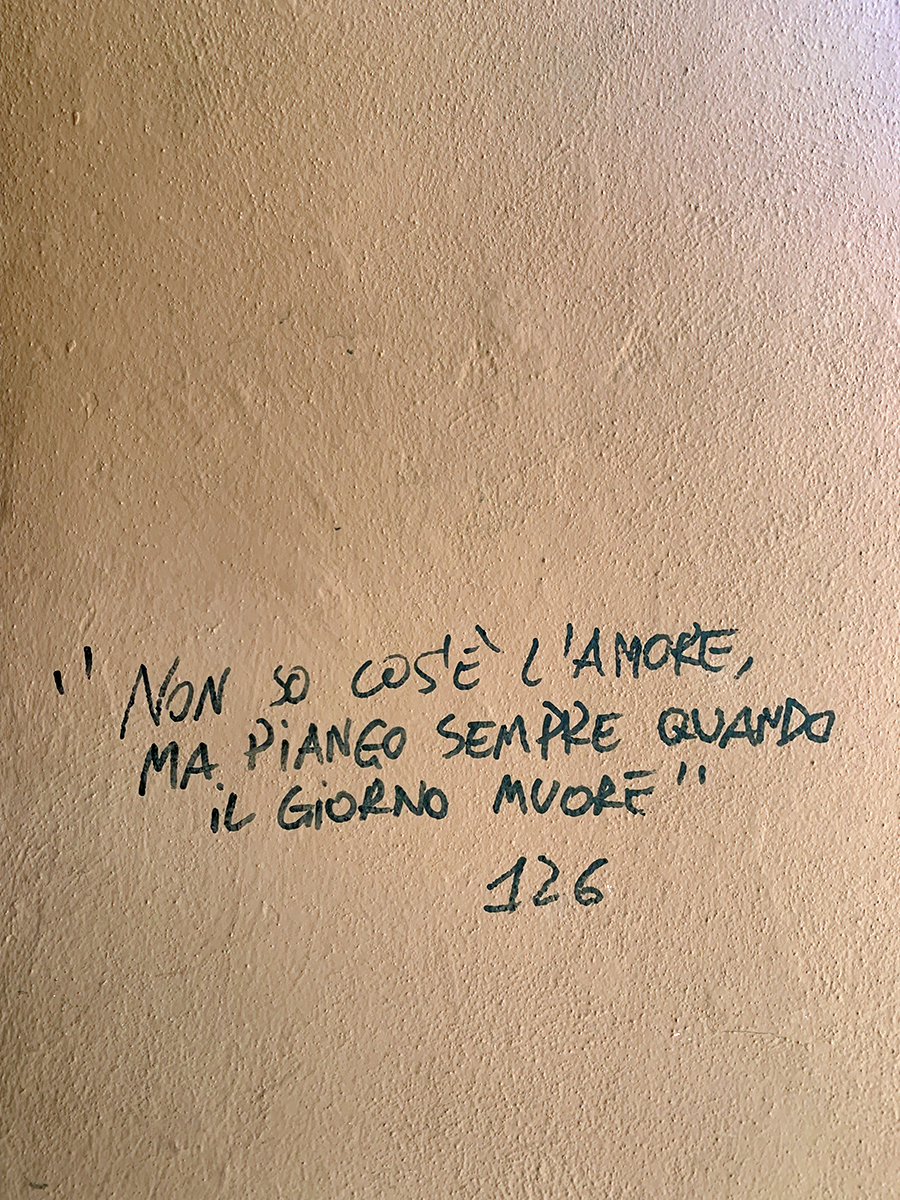 "NON SO COS'È L'AMORE,
MA PIANGO SEMPRE QUANDO
IL GIORNO MUORE"
126